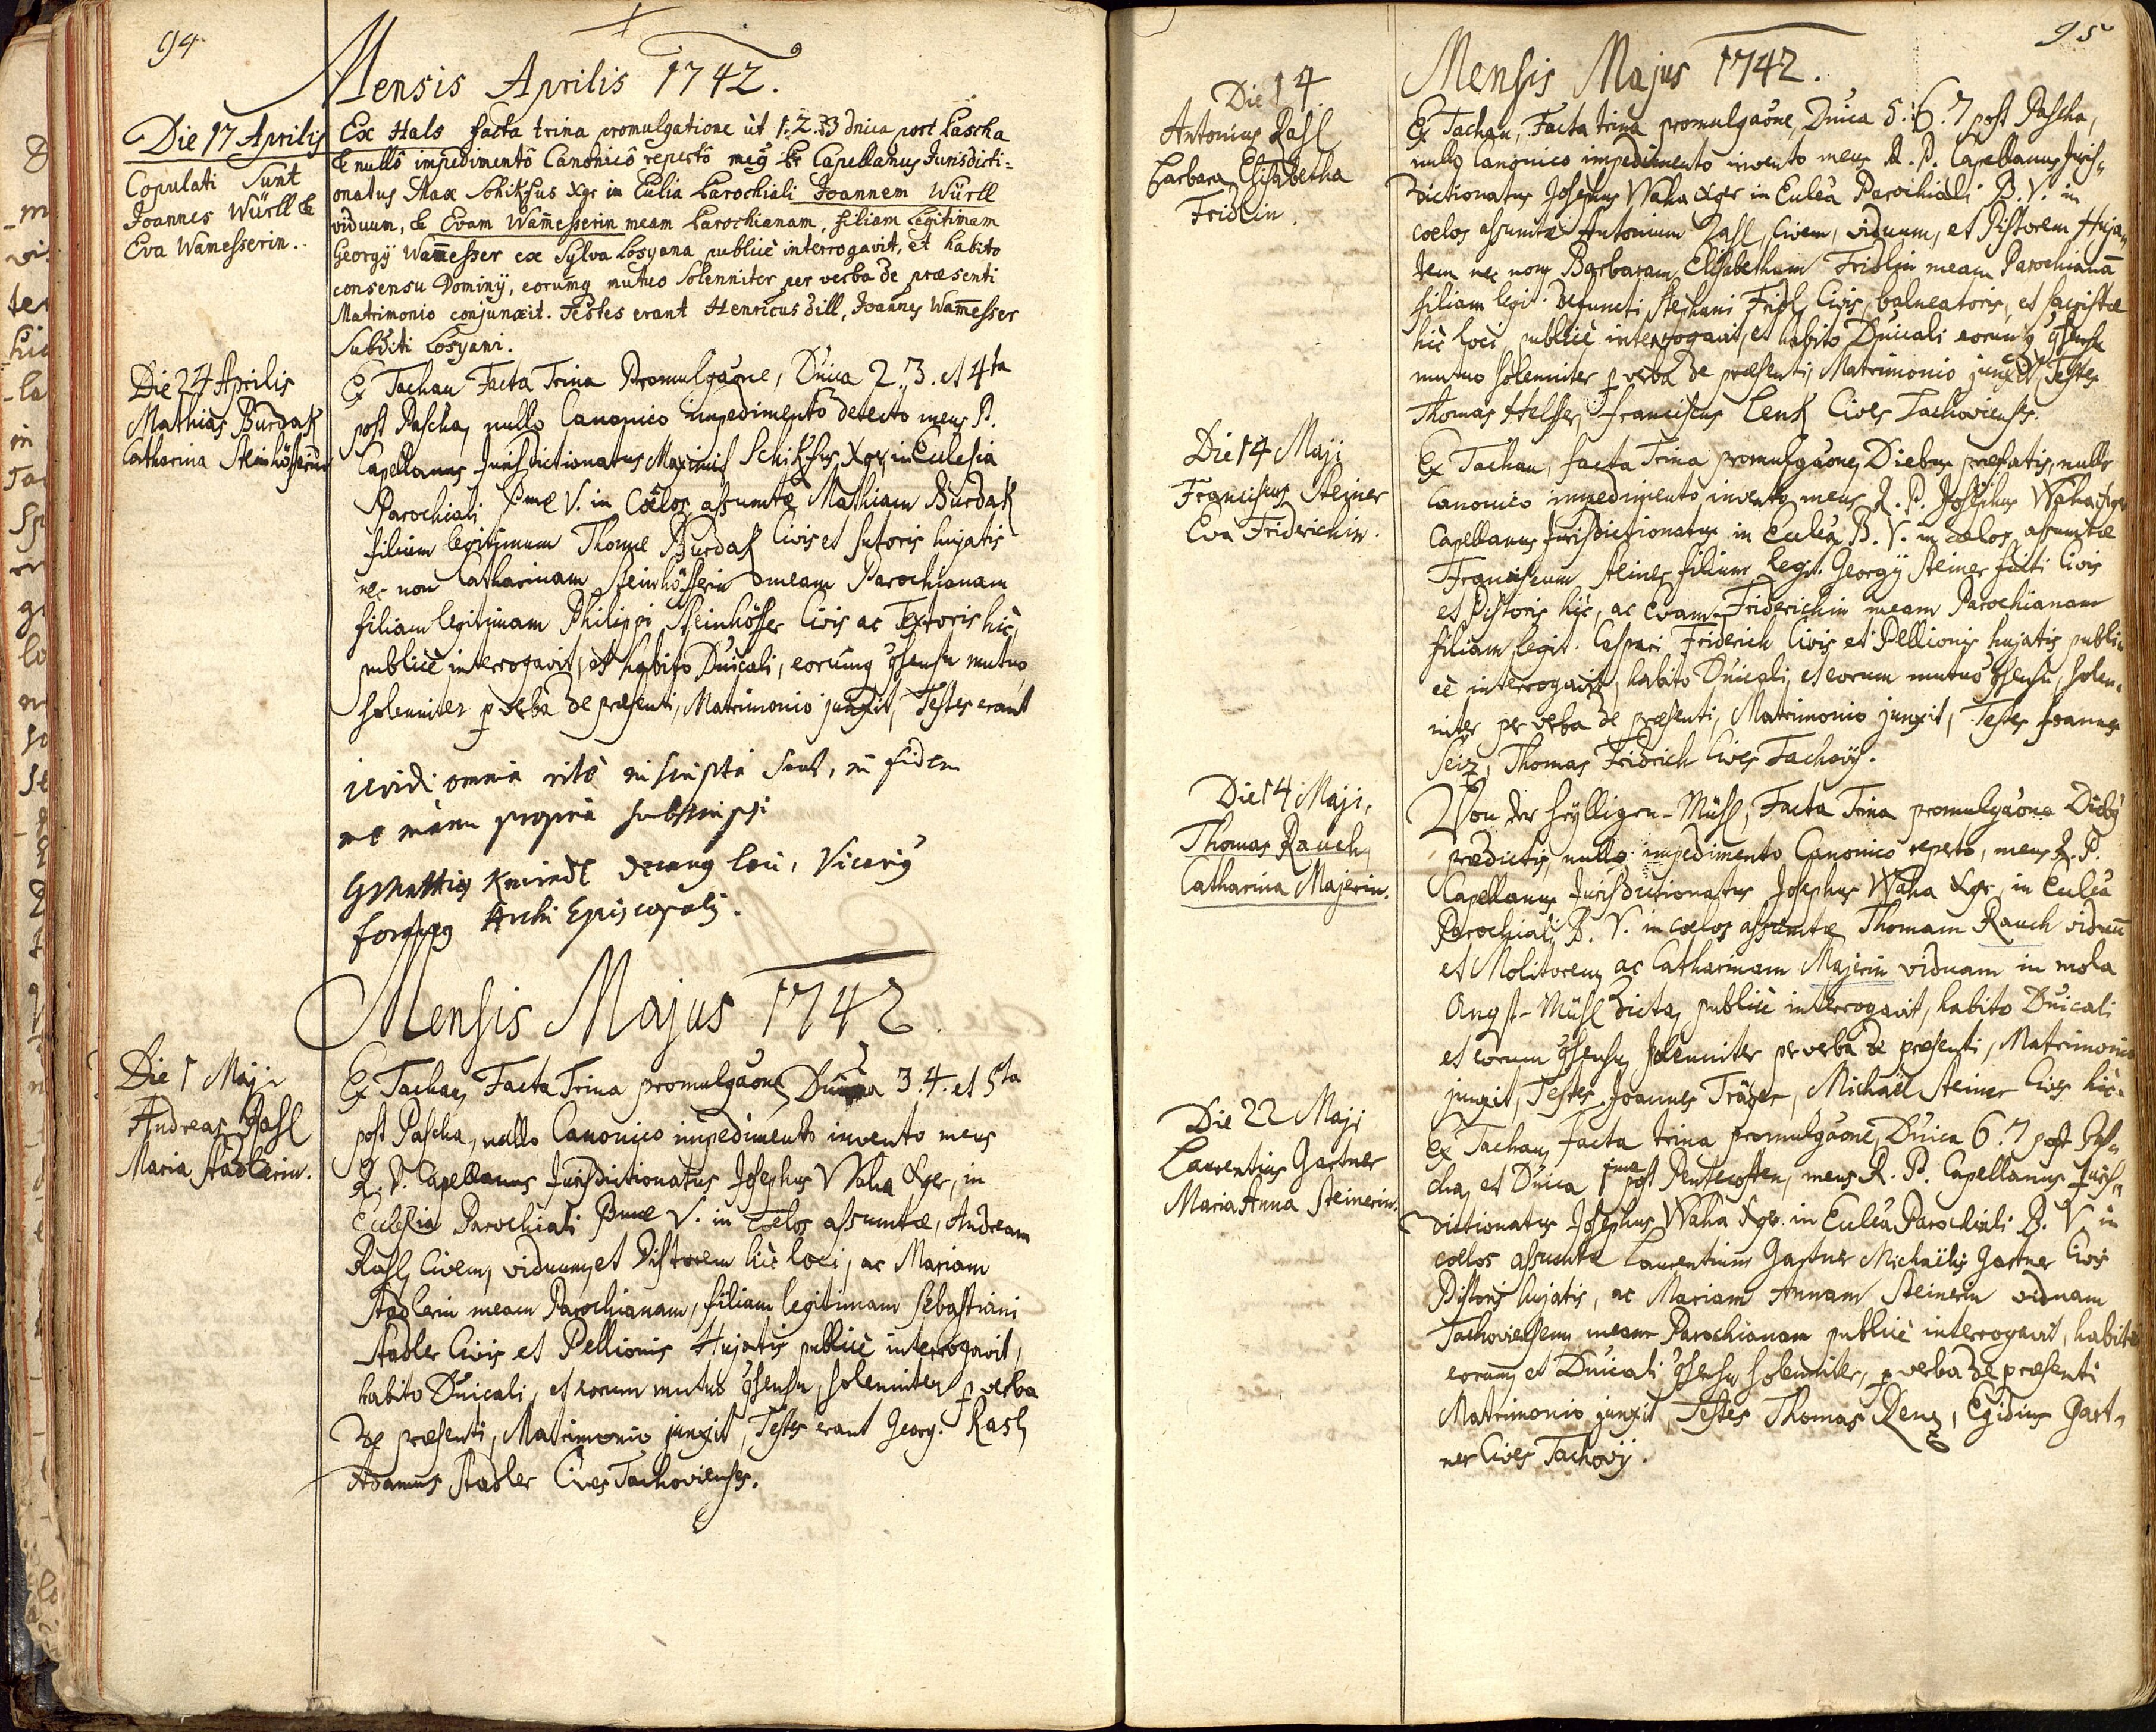 94
Mensis Aprilis 1742.
Die 17 Aprilis
Copulati Sunt
Joannes Würll &
Eva Wamesserin..
Ex Hals facta trina promulgatione ut 1. 2. 3 dnica post Pascha
& nullô impedimentô Canonicô repertô meg Capellanus Jurisdicti=
onatus Max Schiksus Xgr in Eclia Parochiali Joannem Würll
viduum, & Evam Wam̄esserin meam Parochianam, filiam Legitimam
Georgÿ Wam̄esser ex Sylva Losyana publicè interrogavit, et habito
consensu Dominÿ, eorumq mutuo Solenniter per verba de præsenti
Matrimonio conjunxit. Testes erant Henricus dill, Joannes Wam̄esser
Subditi Losyani.
Die 24 Aprilis
Mathias Burdak
Catharina Steinhösserin
Ex Tachau Facta Trina Promulgaōne, Dnica 2. 3. et 4ta
post Pascha, nullo Canonico impedimento detecto meus P.
Capellanus Jurisdictionatus Maximus Schiksus Xgr, in Ecclesia
Parochiali Bmæ V. in Coëlos assumtæ Mathiam Burdak
filium legitimum Thomæ Burdak Civis et Sutoris hujatis
nec non Catharinam Steinhösserin meam Parochianam
filiam legitimam Philippi Steinhösser Civis ac Textoris hic,
publicè interrogavit, et habito Dnicali, eorumq gsensu mutuo,
solenniter p verba de præsenti, Matrimonio junxit, Testes erant
revidi omnia ritè inscripta sunt, in fidem
me manu propria subscripsi
Decang loci, Vicarig
foraneg Archi Episcopalis.
Mensis Majus 1742.
Die 1 Maji
Andreas Rasl
Maria Stadlerin.
Ex Tachau, Facta Trina promulgaōne, Dnica 3. 4. et 5ta
post Pascha, nullo Canonico impedimento invento meus
R. P. Capellanus Jurisdictionatus Josephus Waha Xgr, in
Ecclesia Parochiali Bmæ V. in coelos assumtæ, Andream
Rasl, Civem, viduum, et Pistorem hic loci, ac Mariam
Stadlerin meam Parochianam, filiam legitimam Sebastiani
Stadler Civis et Pellionis Hujatis publicè interrogavit,
habito Dnicali, et eorum mutuo gsensu, solenniter p verba
de præsenti, Matrimonio junxit, Testes erant Georg. Rasl
Adamus Stadler Cives Tachovienses.
95
Mensis Majus 1742.
Die 14
Antonius Rasl
Barbara Elisabetha
Fridlin.
Ex Tachau, Facta trina promulgaōne, Dnica 5. 6. 7 post Pascha,
nullo Canonico impedimento invento meus R. P. Capellanus Juris=
dictionatus Josephus Waha Xgr in Ecclea Parochiali B. V. in
coelos assumtæ Antonium Rasl, Civem, viduum, et Pistorem Huja=
tem nec non Barbaram Elisabetham Fridlin meam Parochianā
filiam legit. defuncti Stephani Fridl, Civis, balneatoris, et sacristæ
hic loci publicè interrogavit, et habito Dnicali eorumq gsensu
mutuo solenniter p verba de præsenti, Matrimonio junxit, Testes
Thomas Helsser, Franciscus Lenk Cives Tachovienses.
Die 14 Maji
Franciscus Steiner
Eva Friderichin.
Ex Tachau, facta Trina promulgaōne, Diebus præfatis, nullo
Canonico impedimento invento, meus R. P. Josephus Waha Xgr
Capellanus Jurisdictionatus in Ecclea B. V. in coelos assumtæ
Franciscum Steiner filium legit. Georgÿ Steiner Civis
et Pistoris hic, ac Evam Friderichin meam Parochianam
filiam legit. Caspari Friderich Civis et Pellionis hujatis publi=
cè interrogavit, habito Dnicali, et eorum mutuo gsensu, solen=
niter per verba de præsenti, Matrimonio junxit, Testes Joannes
Seiz, Thomas Fridrich Cives Tachovÿ.
Die 14 Maji,
Thomas Rauch,
Catharina Majerin.
Von der heylligen-Mühl, Facta Trina promulgaōne Diebg
prædictis, nullo impedimento Canonico reperto, meus R. P.
Capellanus Jurisdictionatus Josephus Waha Xgr, in Ecclea
Parochiali B. V. in coelos assumtæ Thomam Rauch viduū
et Molitorem, ac Catharinam Majerin viduam in mola
Angst-Mühl dicta, publicè interrogavit, habito Dnicali
et eorum gsensu, solenniter per verba de præsenti, Matrimonio
junxit, Testes Joannes Träger, Michaël Steiner Cives hic.
Die 22 Maji
Laurentius Gartner
Maria Anna Steinerin.
Ex Tachau, Facta trina promulgaōne, Dnica 6. 7 post Pas=
cha, et Dnica 1ma post Pentecosten, meus R. P. Capellanus Juris=
dictionatus Josephus Waha Xgr in Ecclea Parochiali B. V. in
coelos assumtæ Laurentium Gartner Michaëlis Gartner Civis
Pistoris hujatis, ac Mariam Annam Steinerin viduam
Tachoviensem meam Parochianam publicè interrogavit, habito
eorum, et Dnicali gsensu solenniter, p verba de præsenti
Matrimonio junxit, Testes Thomas Renz, Egidius Gart=
ner Cives Tachovÿ.